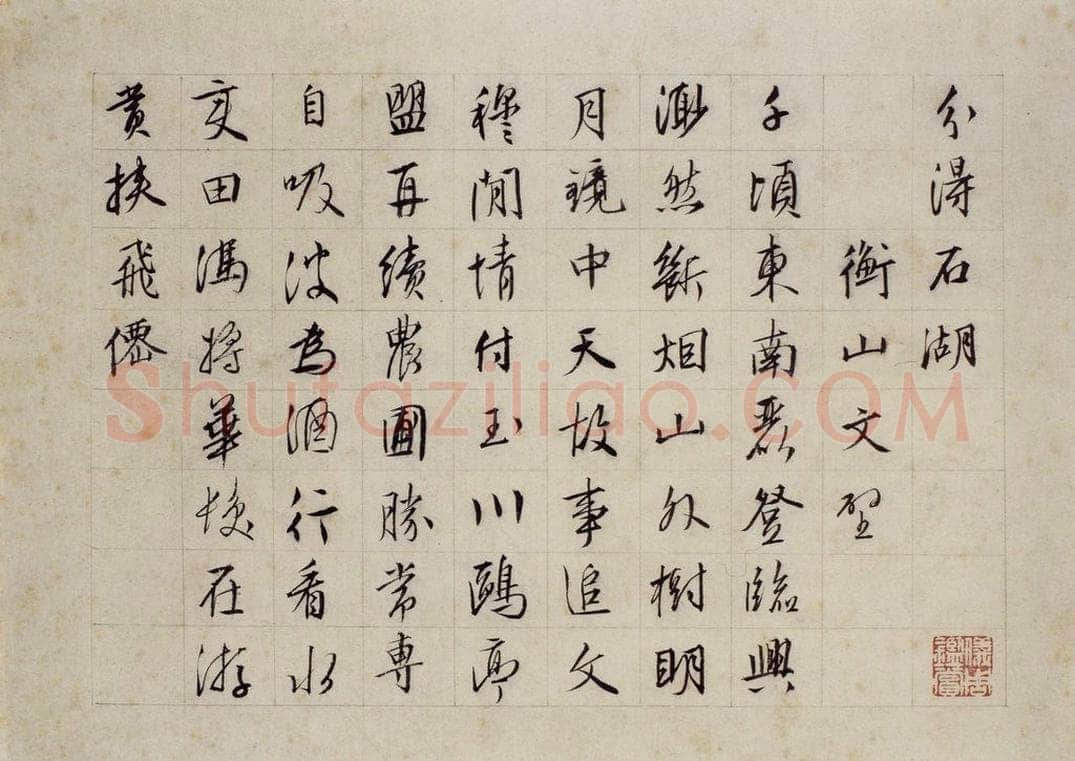 分得石湖
衡山文壁
千頃東南最登臨興
渺然斷烟山外樹明
月鏡中天故事追文
穆閒情付玉川鷗亭
盟再續農圃勝常專
自吸波為酒行看水
変田馮將華在游
賞挾飛僊
Shufaziliao.COM